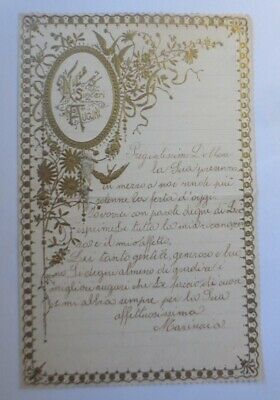 Sinceri
Auguri
Pregiatissimi
la Sua presenza
in mezzo a noi rende più
solenne la festa d'oggi.
Vorrei con parole degne di Lei
esprimerLe tutta la mia
e il mio affetto.
Lei tanto gentile, generoso e
si degni almeno di gradire i
migliori auguri che Le faccio di cuore
e mi abbia sempre per la Sua
affettuosissima